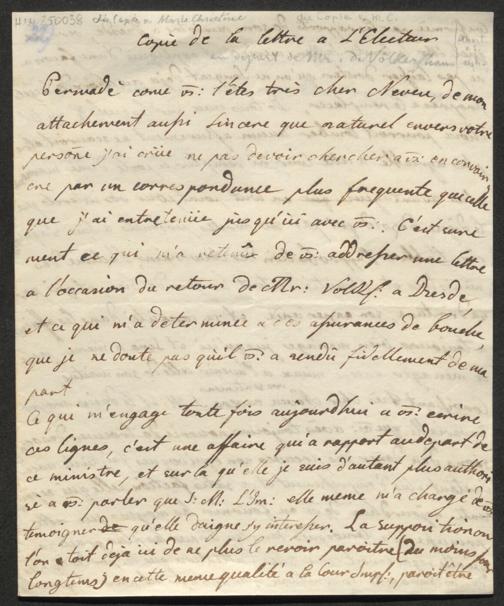 Copie de la lettre a L'Electeur
Persuadé come vs: l'êtes tres cher Neveu, de mon
attachement aussi sincere que naturel envers votre
persone j'ai crüe ne pas devoir chercher a vs: en convain
cre par un correspondance plus frequente que celle
que j'ai entretenüe jusqu'ici avec vs: . C'est sure
ment ce qui m'a retenüe de vs: addresser une lettre
a l'occasion du retour de Mr: Volks: a Dresde,
et ce qui m'a determinée a ces assurances de bouche
que je ne doute pas qu'il vs: a rendü fidellement de ma
part
Ce qui m'engage toute fois aujourdhui a vs: ecrire
ces lignes, c'est une affaire qui a rapport au depart de
ce ministre, et sur la qu'elle je suis d'autant plus authori
sée a vs: parler que S: M: L'Im: elle meme m'a chargé de vs:
temoigner qu'elle daigne s'y interesser. La supposition ou
l'on etoit déja ici de ne plus le revoir paroitre (du moins pour
longtems) en cette meme qualité a la Cour Imp:, paroit être